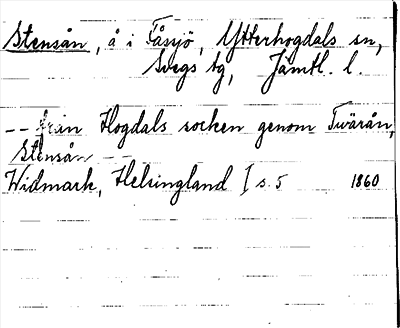 Stensån, å i Fåsjö, Ytterhogdals sn,
Svegs tg, Jämtl. l.
-- från Hogdals socken genom Tvärån,
Stensån --
Widmark, Helsingland I s. 5 1860